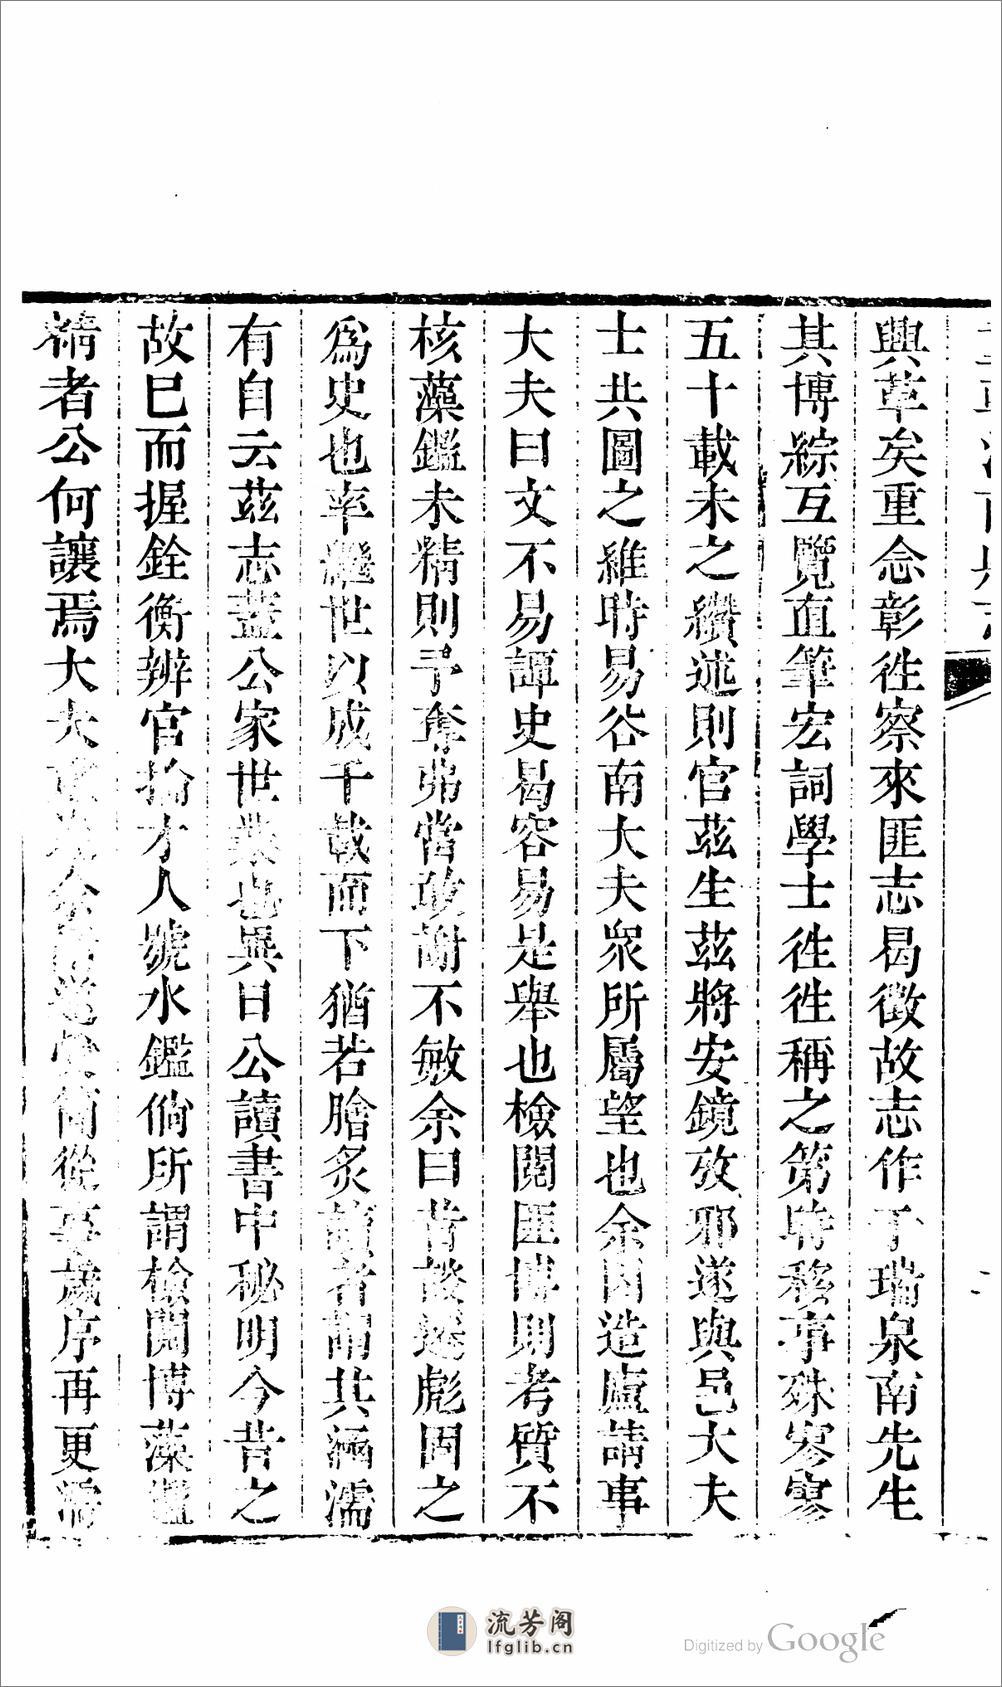 興草矣重念彰徃察來匪志曷徵故志作于瑞泉南先生
其博綜互覽直筆宏詞學士徃徃稱之第時移事殊寥寥
五十載未之纘述則官茲生茲將安鏡攷邪遂與邑大夫
士共圖之維時易谷南大夫衆所屬望也余因造廬請事
大夫曰文不易譚史曷容易是舉也檢閱匪博則考質不
核藻鑑未精則予奪弗當敢謝不敏余曰昔談遷彪固之
爲史也率繼世以成千載而下猶若膾炙讀者謂其涵濡
有自云茲志蓋公家世業也異日公讀書中秘明今昔之
故巳而握銓衡辨官掄才人號水鑑倘所謂檢閱博藻鑑
精者公何讓焉大夫 簡從事歲序再更
流芳阁
lfglib.cn
Digitized by Google